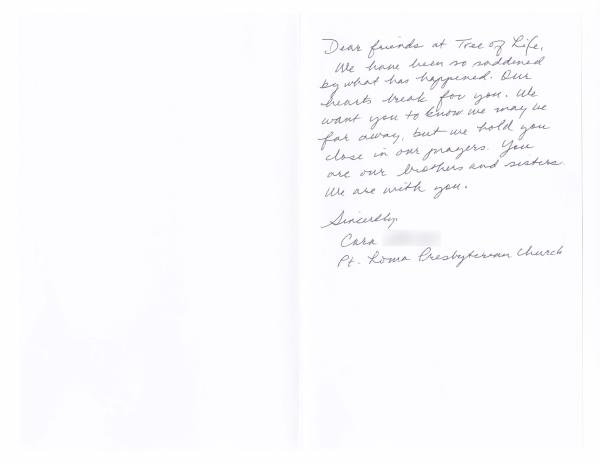 Dear friends at Tree of Life,
We have been so saddened
by what has happened. Our
hearts break for you. We
want you to know we may be
far away, but we hold you
close in our prayers. You
are our brothers and sisters.
We are with you.
Sincerely,
Cara
Pt. Loma Presbyterian Church